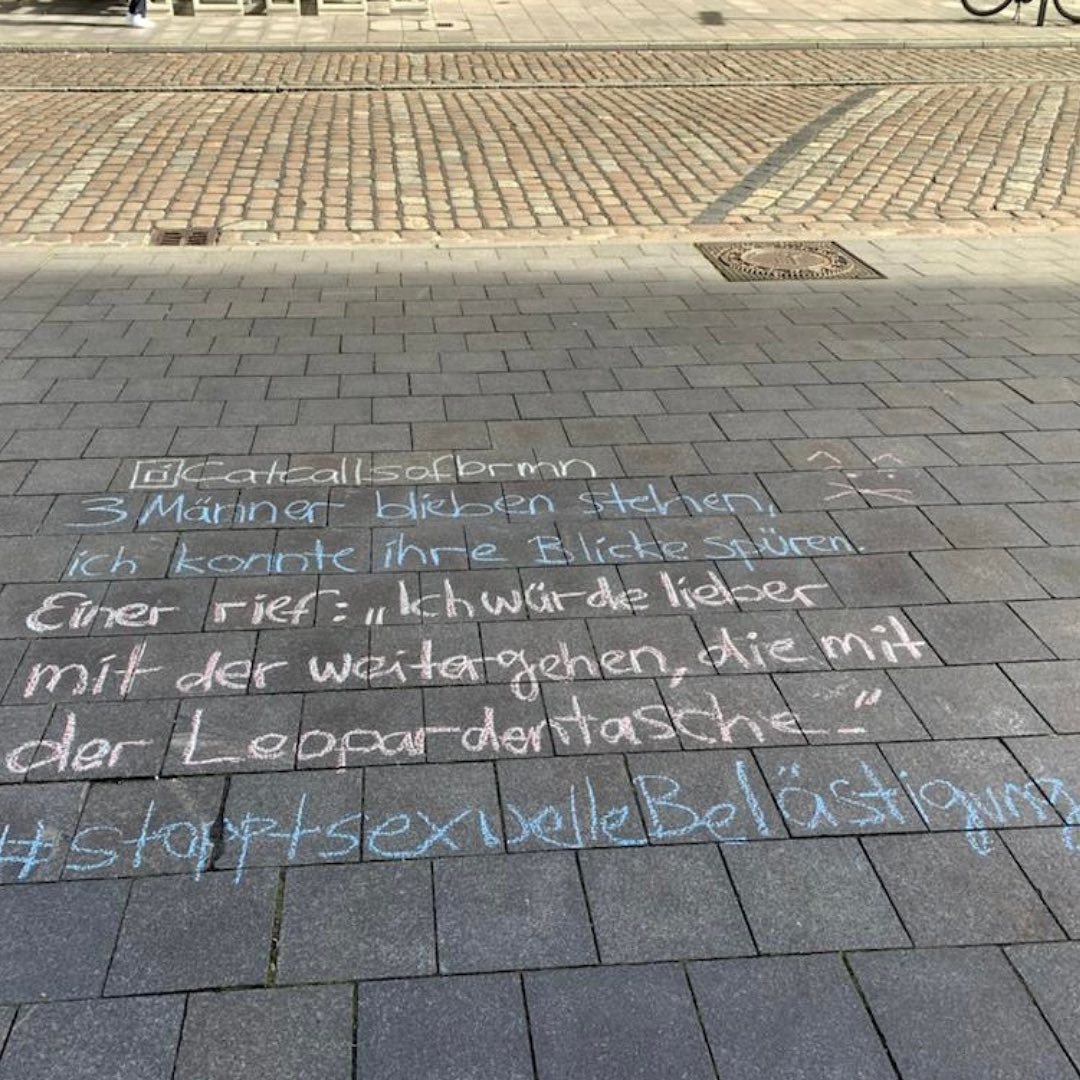 Catcallsofbrmn
3 Männer blieben stehen,
ich konnte ihre Blicke spüren.
Einer rief: „Ich würde lieber
mit der weitergehen, die mit
der Leopardentasche."
#stopptsexuelleBelästigung